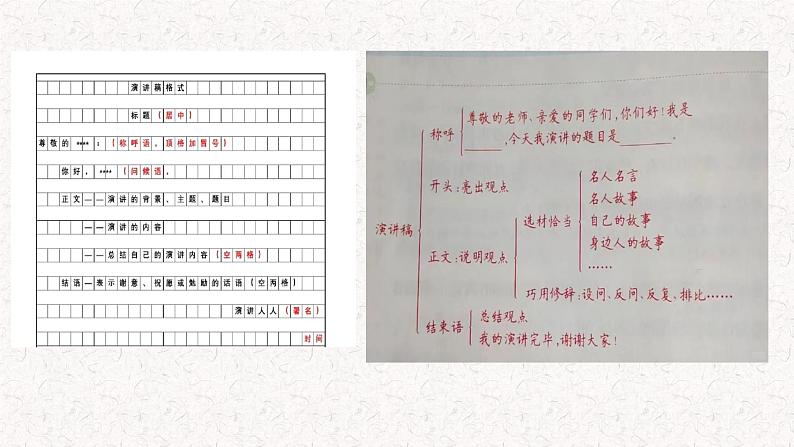 演讲稿格式
标题(居中)
尊敬的****:(称呼语,顶格加冒号)
你好,****(问候语,
正文——演讲的背景、主题、题目
——演讲的内容
——总结自己的演讲内容(空两格)
结语—表示谢意、祝愿或勉励的话语(空两格)
演讲人人(署名)
时间
演讲稿
称呼
尊敬的老师、亲爱的同学们,你们好!我是
______,今天我演讲的题目是________。
开头:亮出观点
正文:说明观点
选材恰当
名人名言
名人故事
自己的故事
身边人的故事
……
巧用修辞:设问、反问、反复、排比……
结束语
总结观点
我的演讲完毕,谢谢大家!